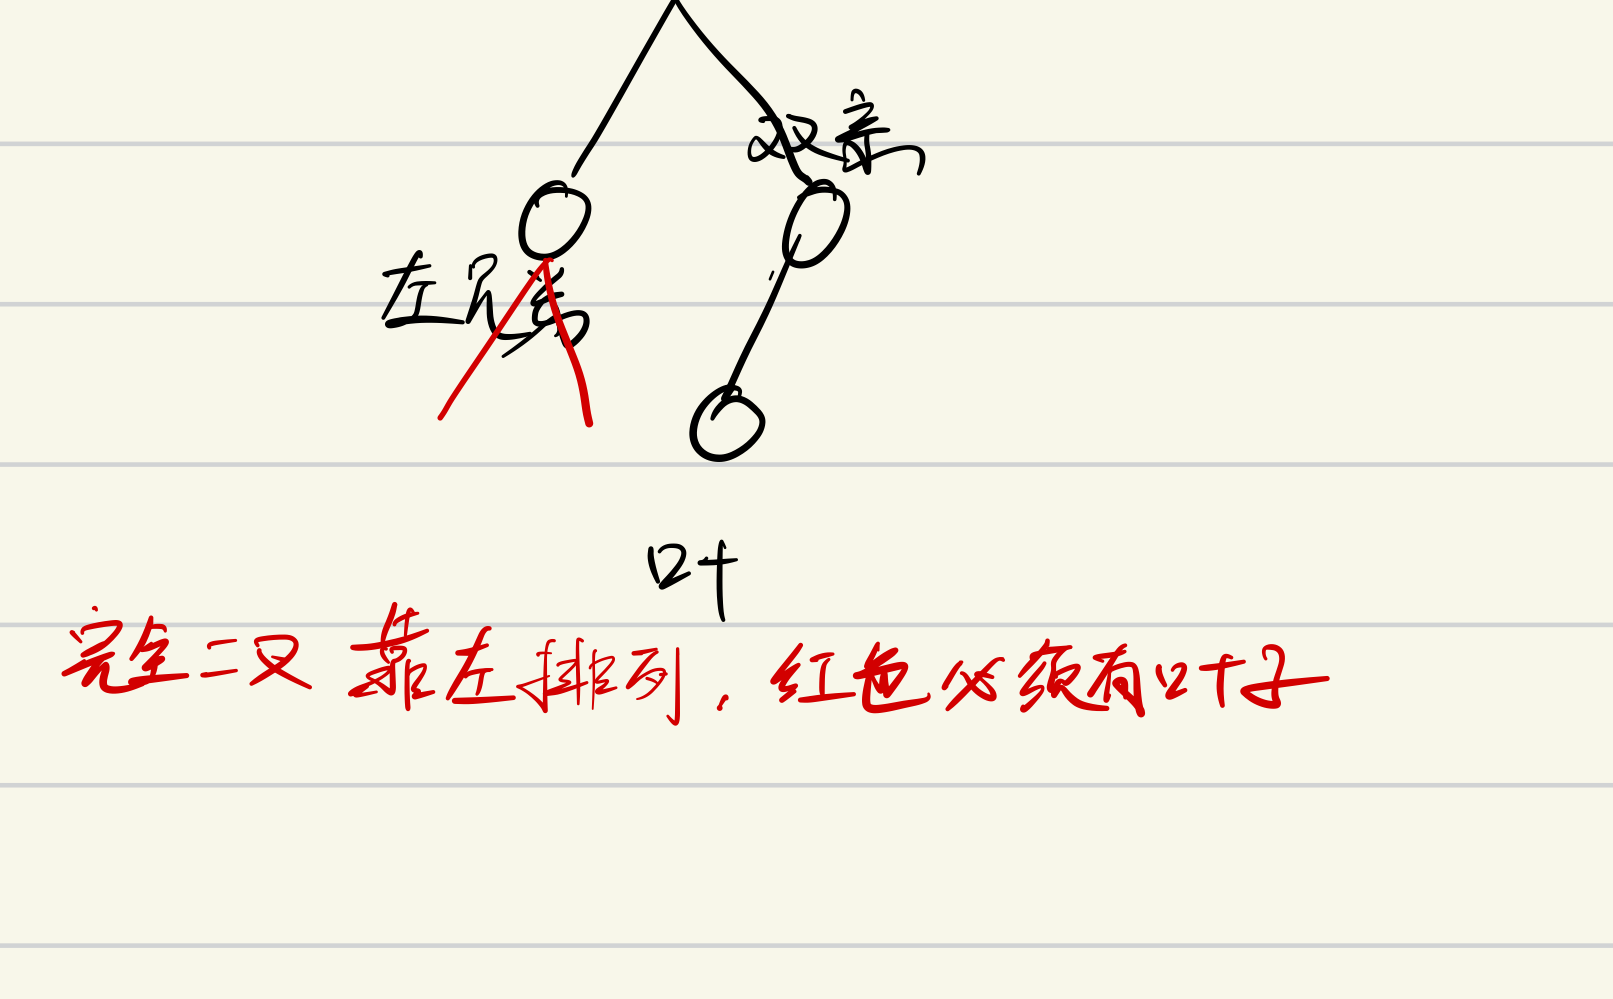 双亲
左兄弟
叶
完全二叉 靠左排列，红色必须有叶子